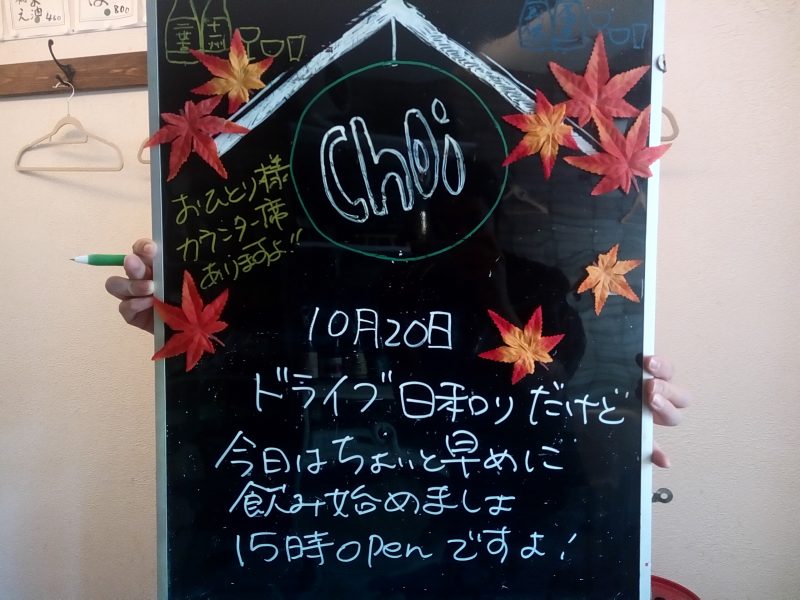 450
800
十二六
Choi
おひとり様
カウンター席
ありますよ!!
10月20日
ドライブ日和りだけど
今日はちょいと早めに
飲み始めましょ
15時openですよ!